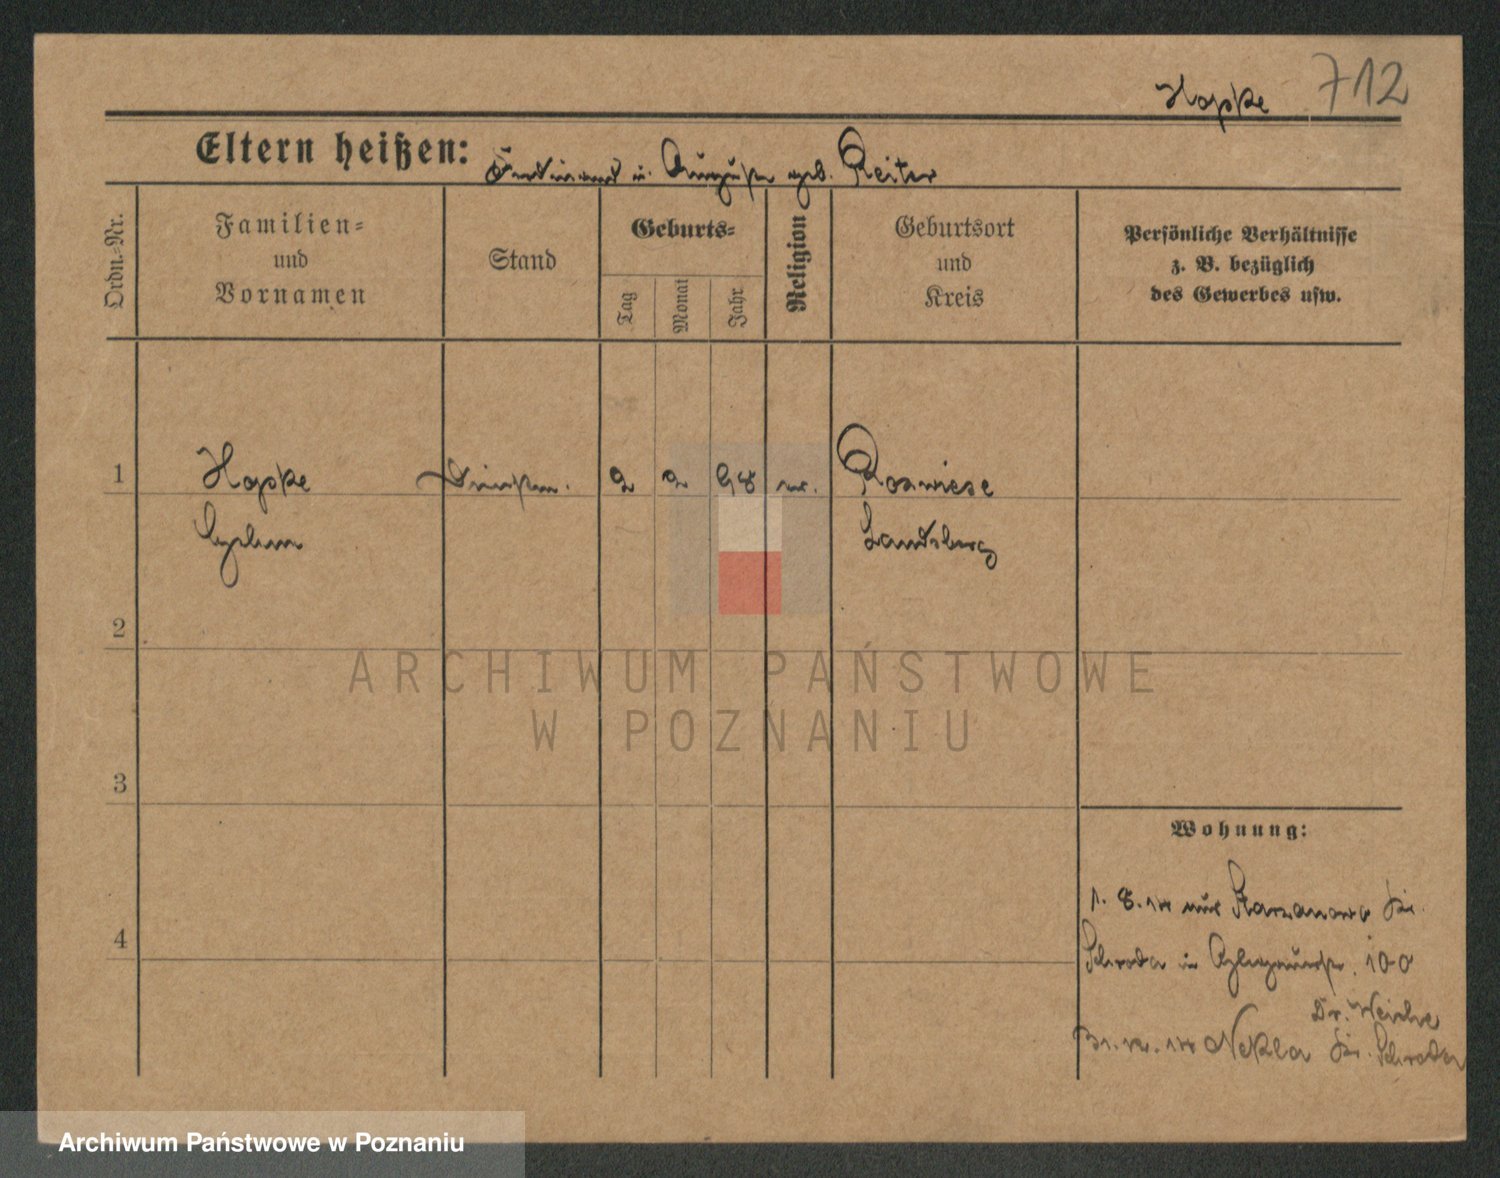 712
Hopke
Eltern heißen: Ferdinand u. Auguste geb. Reiter
Ordn.-Nr.
Familien-
und
Vornamen
Stand
Geburts-
Tag
Monat
Jahr
Religion
Geburtsort
und
Kreis
Persönliche Verhältnisse
z. B. bezüglich
des Gewerbes usw.
1
Hopke 2 2 98 Roswiese
Landsberg
2
3
4
Wohnung:
1. 8. 14 aus Starzanowo Kr.
Schroda in 100
31. 12. 14 Nekla Kr. Schroda
ARCHIWUM PAŃSTWOWE
W POZNANIU
Archiwum Państwowe w Poznaniu